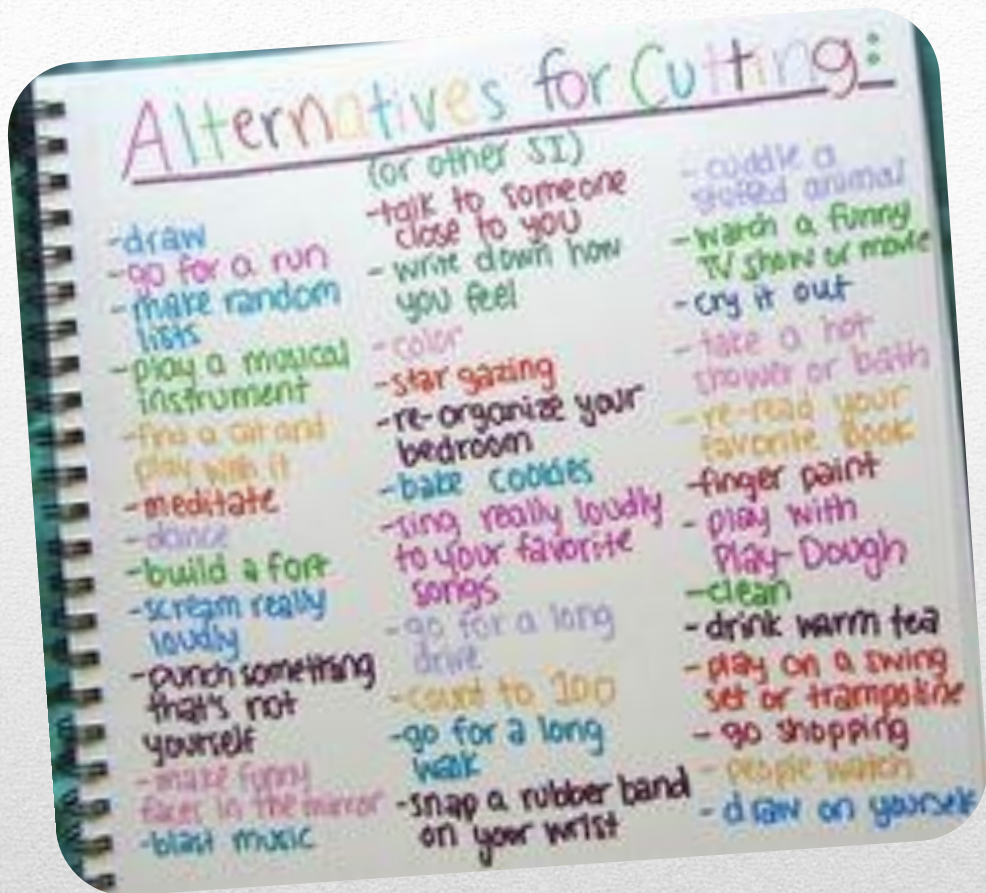 Alternatives for Cutting:
(or other SI)
-draw
-go for a run
-make random
lists
-play a musical
instrument
-find a cat and
play with it
-meditate
-dance
-build a fort
-scream really
loudly
-punch something
that's not
yourself
-make funny
faces in the mirror
-blast music
-talk to someone
close to you
-write down how
you feel
-color
-star gazing
-re-organize your
bedroom
-bake cookies
-sing really loudly
to your favorite
songs
-go for a long
drive
-count to 100
-go for a long
walk
-snap a rubber band
on your wrist
-cuddle a
stuffed animal
-watch a funny
TV show or movie
-cry it out
-take a hot
shower or bath
-re-read your
favorite book
-finger paint
-play with
Play-Dough
-clean
-drink warm tea
-play on a swing
set or trampoline
-go shopping
-people watch
-draw on yourself